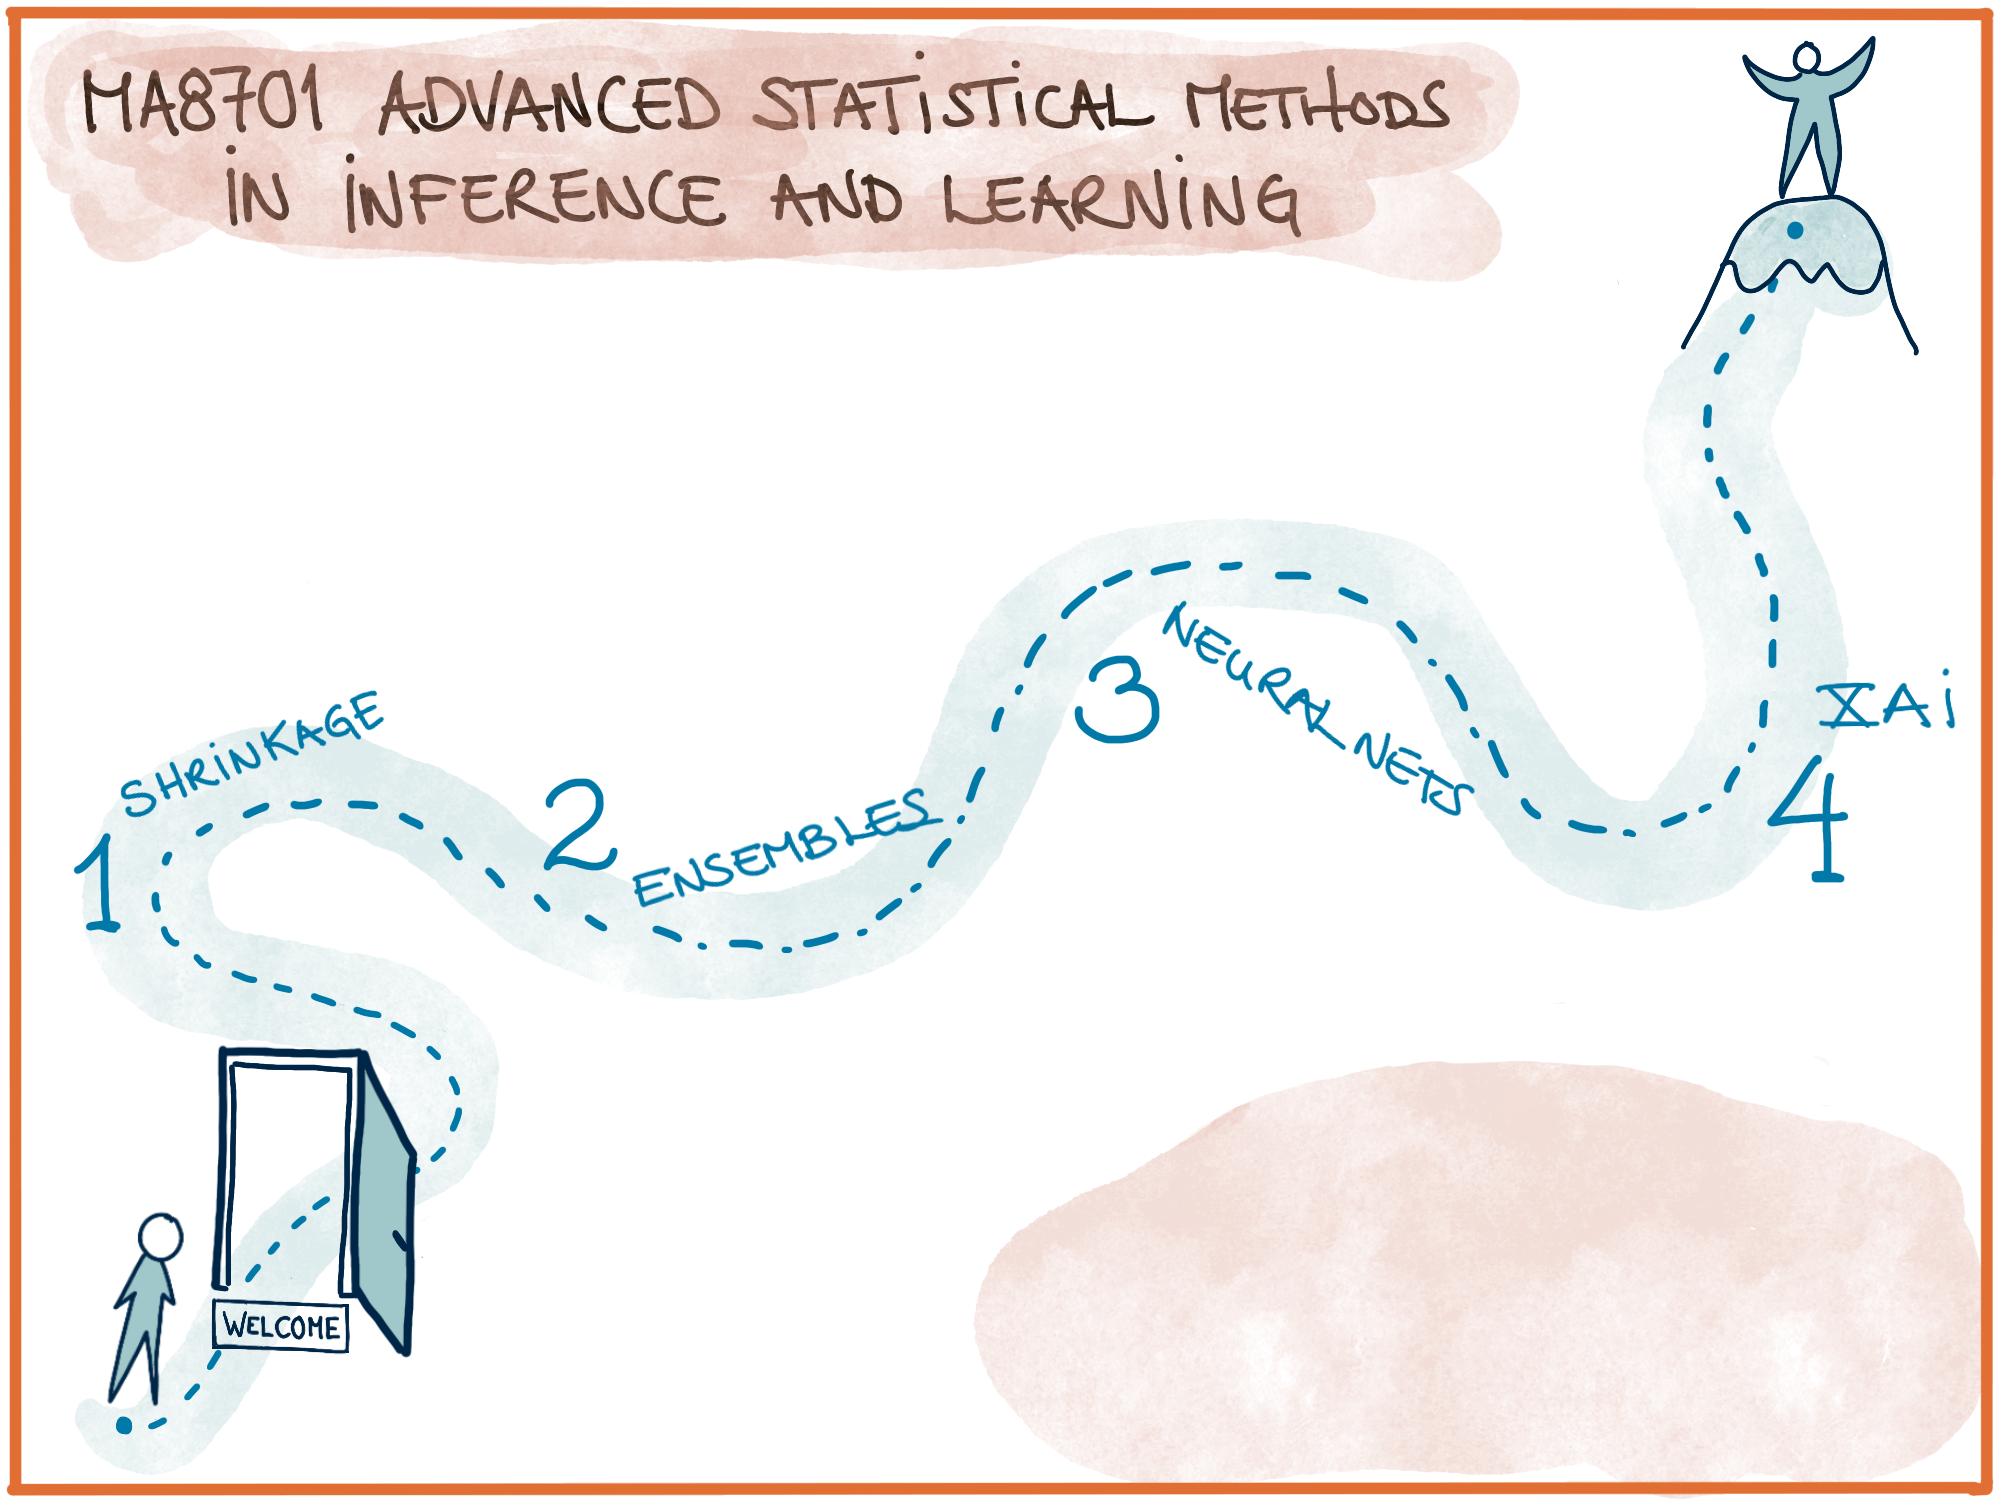 MA8701 ADVANCED STATiSTiCAL METHODS
iN iNFERENCE AND LEARNiNG
1
SHRiNKAGE
2
ENSEMBLES
3
NEURAL NETS
XAi
4
WELCOME